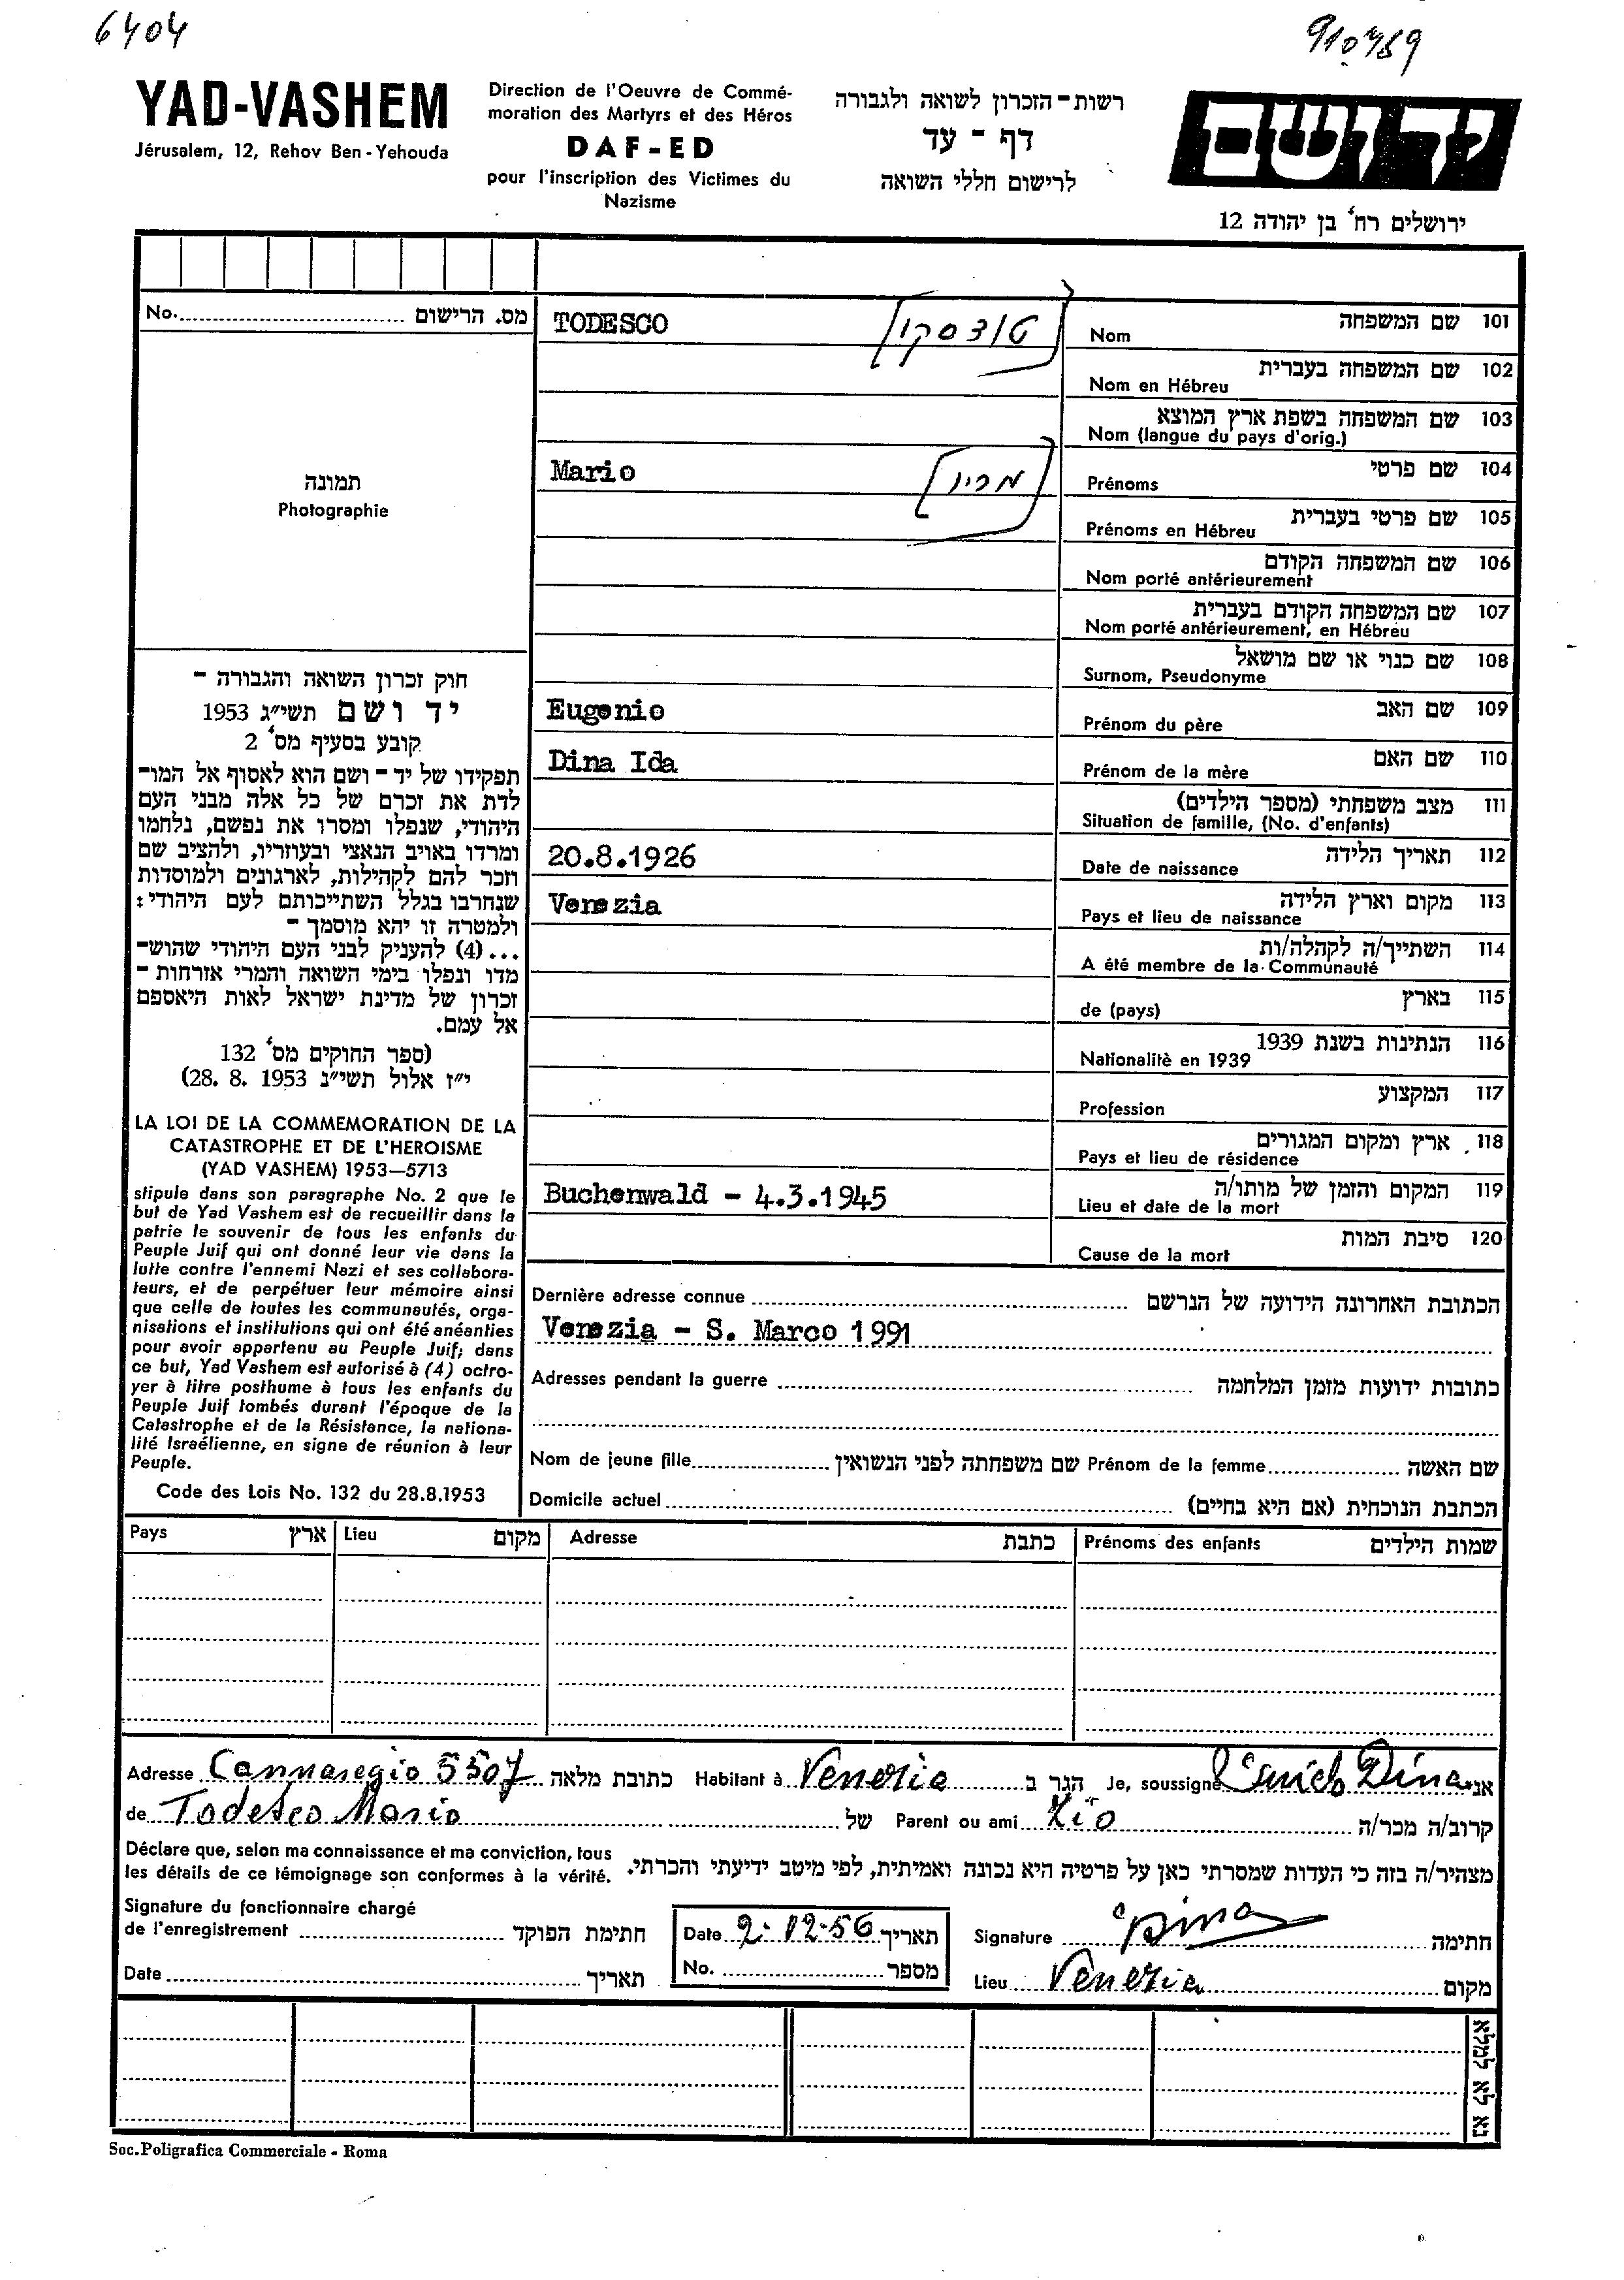 6404
910789
YAD-VASHEM
Jérusalem, 12, Rehov Ben-Yehouda
Direction de l'Oeuvre de Commé-
moration des Martyrs et des Héros
DAF-ED
pour l'inscription des Victimes du
Nazisme
רשות-הזכרון לשואה ולגבורה
דף-עד
לרישום חללי השואה
יד ושם
ירושלים רח' בן יהודה 12
No. מס. הרישום
תמונה
Photographie
חוק זכרון השואה והגבורה –
יד ושם תשי"ג 1953
קובע בסעיף מס' 2
תפקידו של יד-ושם הוא לאסוף אל המו-
לדת את זכרם של כל אלה מבני העם
היהודי, שנפלו ומסרו את נפשם, נלחמו
ומרדו באויב הנאצי ובעוזריו, ולהציב שם
וזכר להם לקהילות, לארגונים ולמוסדות
שנחרבו בגלל השתייכותם לעם היהודי:
ולמטרה זו יהא מוסמך –
...(4) להעניק לבני העם היהודי שהוש-
מדו ונפלו בימי השואה והמרי אזרחות-
זכרון של מדינת ישראל לאות היאספם
אל עמם.
(ספר החוקים מס' 132
י"ז אלול תשי"ג 28. 8. 1953)
LA LOI DE LA COMMEMORATION DE LA
CATASTROPHE ET DE L'HEROISME
(YAD VASHEM) 1953—5713
stipule dans son paragraphe No. 2 que le
but de Yad Vashem est de recueillir dans la
patrie le souvenir de tous les enfants du
Peuple Juif qui ont donné leur vie dans la
lutte contre l'ennemi Nazi et ses collabora-
teurs, et de perpétuer leur mémoire ainsi
que celle de toutes les communautés, orga-
nisations et institutions qui ont été anéanties
pour avoir appartenu au Peuple Juif; dans
ce but, Yad Vashem est autorisé à (4) octro-
yer à titre posthume à tous les enfants du
Peuple Juif tombés durant l'époque de la
Catastrophe et de la Résistance, la nationa-
lité Israélienne, en signe de réunion à leur
Peuple.
Code des Lois No. 132 du 28.8.1953
TODESCO [טודסקו] Nom שם המשפחה 101
Nom en Hébreu שם המשפחה בעברית 102
Nom (langue du pays d'orig.) שם המשפחה בשפת ארץ המוצא 103
Mario [מריו] Prénoms שם פרטי 104
Prénoms en Hébreu שם פרטי בעברית 105
Nom porté antérieurement שם המשפחה הקודם 106
Nom porté antérieurement, en Hébreu שם המשפחה הקודם בעברית 107
Surnom, Pseudonyme שם כנוי או שם מושאל 108
Eugenio Prénom du père שם האב 109
Dina Ida Prénom de la mère שם האם 110
Situation de famille, (No. d'enfants) מצב משפחתי (מספר הילדים) 111
20.8.1926 Date de naissance תאריך הלידה 112
Venezia Pays et lieu de naissance מקום וארץ הלידה 113
A été membre de la Communauté השתייך/ה לקהלה/ות 114
de (pays) בארץ 115
Nationalitè en 1939 הנתינות בשנת 1939 116
Profession המקצוע 117
Pays et lieu de résidence ארץ ומקום המגורים 118
Buchenwald - 4.3.1945 Lieu et date de la mort המקום והזמן של מותו/ה 119
Cause de la mort סיבת המות 120
Dernière adresse connue הכתובת האחרונה הידועה של הנרשם
Venezia - S. Marco 1991
Adresses pendant la guerre כתובות ידועות מזמן המלחמה
Nom de jeune fille שם משפחתה לפני הנשואין Prénom de la femme שם האשה
Domicile actuel הכתבת הנוכחית (אם היא בחיים)
Pays ארץ Lieu מקום Adresse כתבת Prénoms des enfants שמות הילדים
Adresse Cannaregio 5507 כתובת מלאה Habitant à Venezia הגר ב Je, soussigné Dina אני
de Todesco Mario של Parent ou ami Zio קרוב/ה מכר/ה
Déclare que, selon ma connaissance et ma conviction, tous
les détails de ce témoignage son conformes à la vérité.
מצהיר/ה בזה כי העדות שמסרתי כאן על פרטיה היא נכונה ואמיתית, לפי מיטב ידיעתי והכרתי.
Signature du fonctionnaire chargé
de l'enregistrement חתימת הפוקד
Date תאריך
Date 2-12-56 תאריך
No. מספר
Signature Dina חתימה
Lieu Venezia מקום
נא לא למלא
Soc. Poligrafica Commerciale - Roma